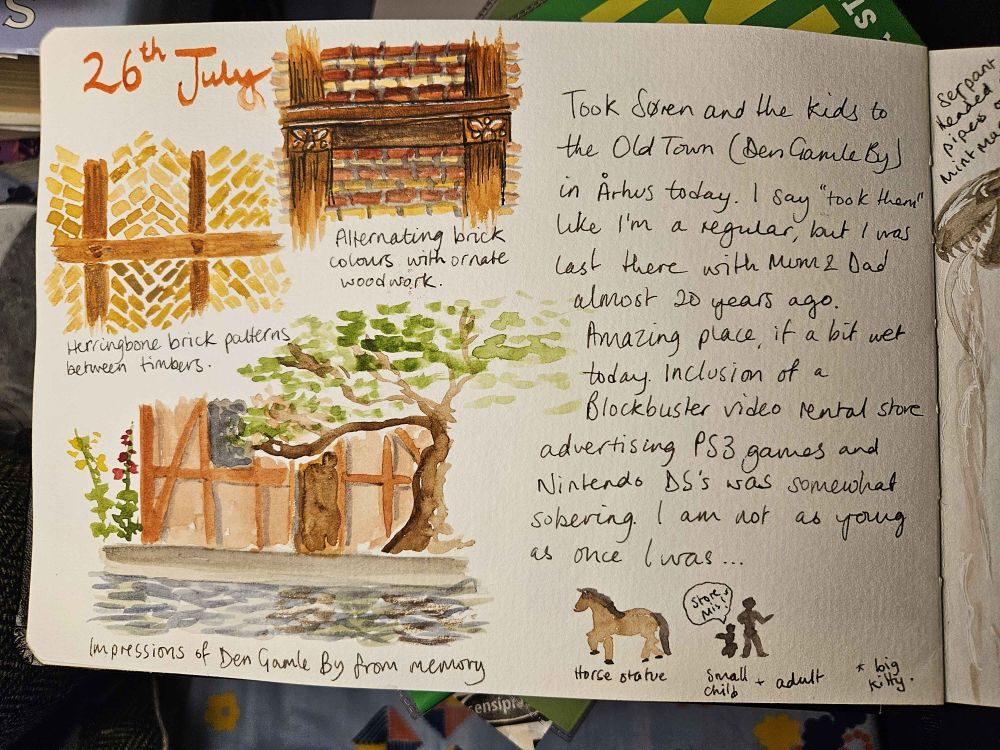 26th July
Alternating brick
colours with ornate
woodwork.
Herringbone brick patterns
between timbers.
Impressions of Den Gamle By from memory
Took Søren and the kids to
the Old Town (Den Gamle By)
in Århus today. I say "took them"
like I'm a regular, but I was
last there with Mum & Dad
almost 20 years ago.
Amazing place, if a bit wet
today. Inclusion of a
Blockbuster video rental store
advertising PS3 games and
Nintendo DS's was somewhat
sobering. I am not as young
as once I was...
Store
Mis!
Horse statue
Small
child + adult
* big
kitty.
Serpant
Headed
pipers
Mint
ST
S
ensipl